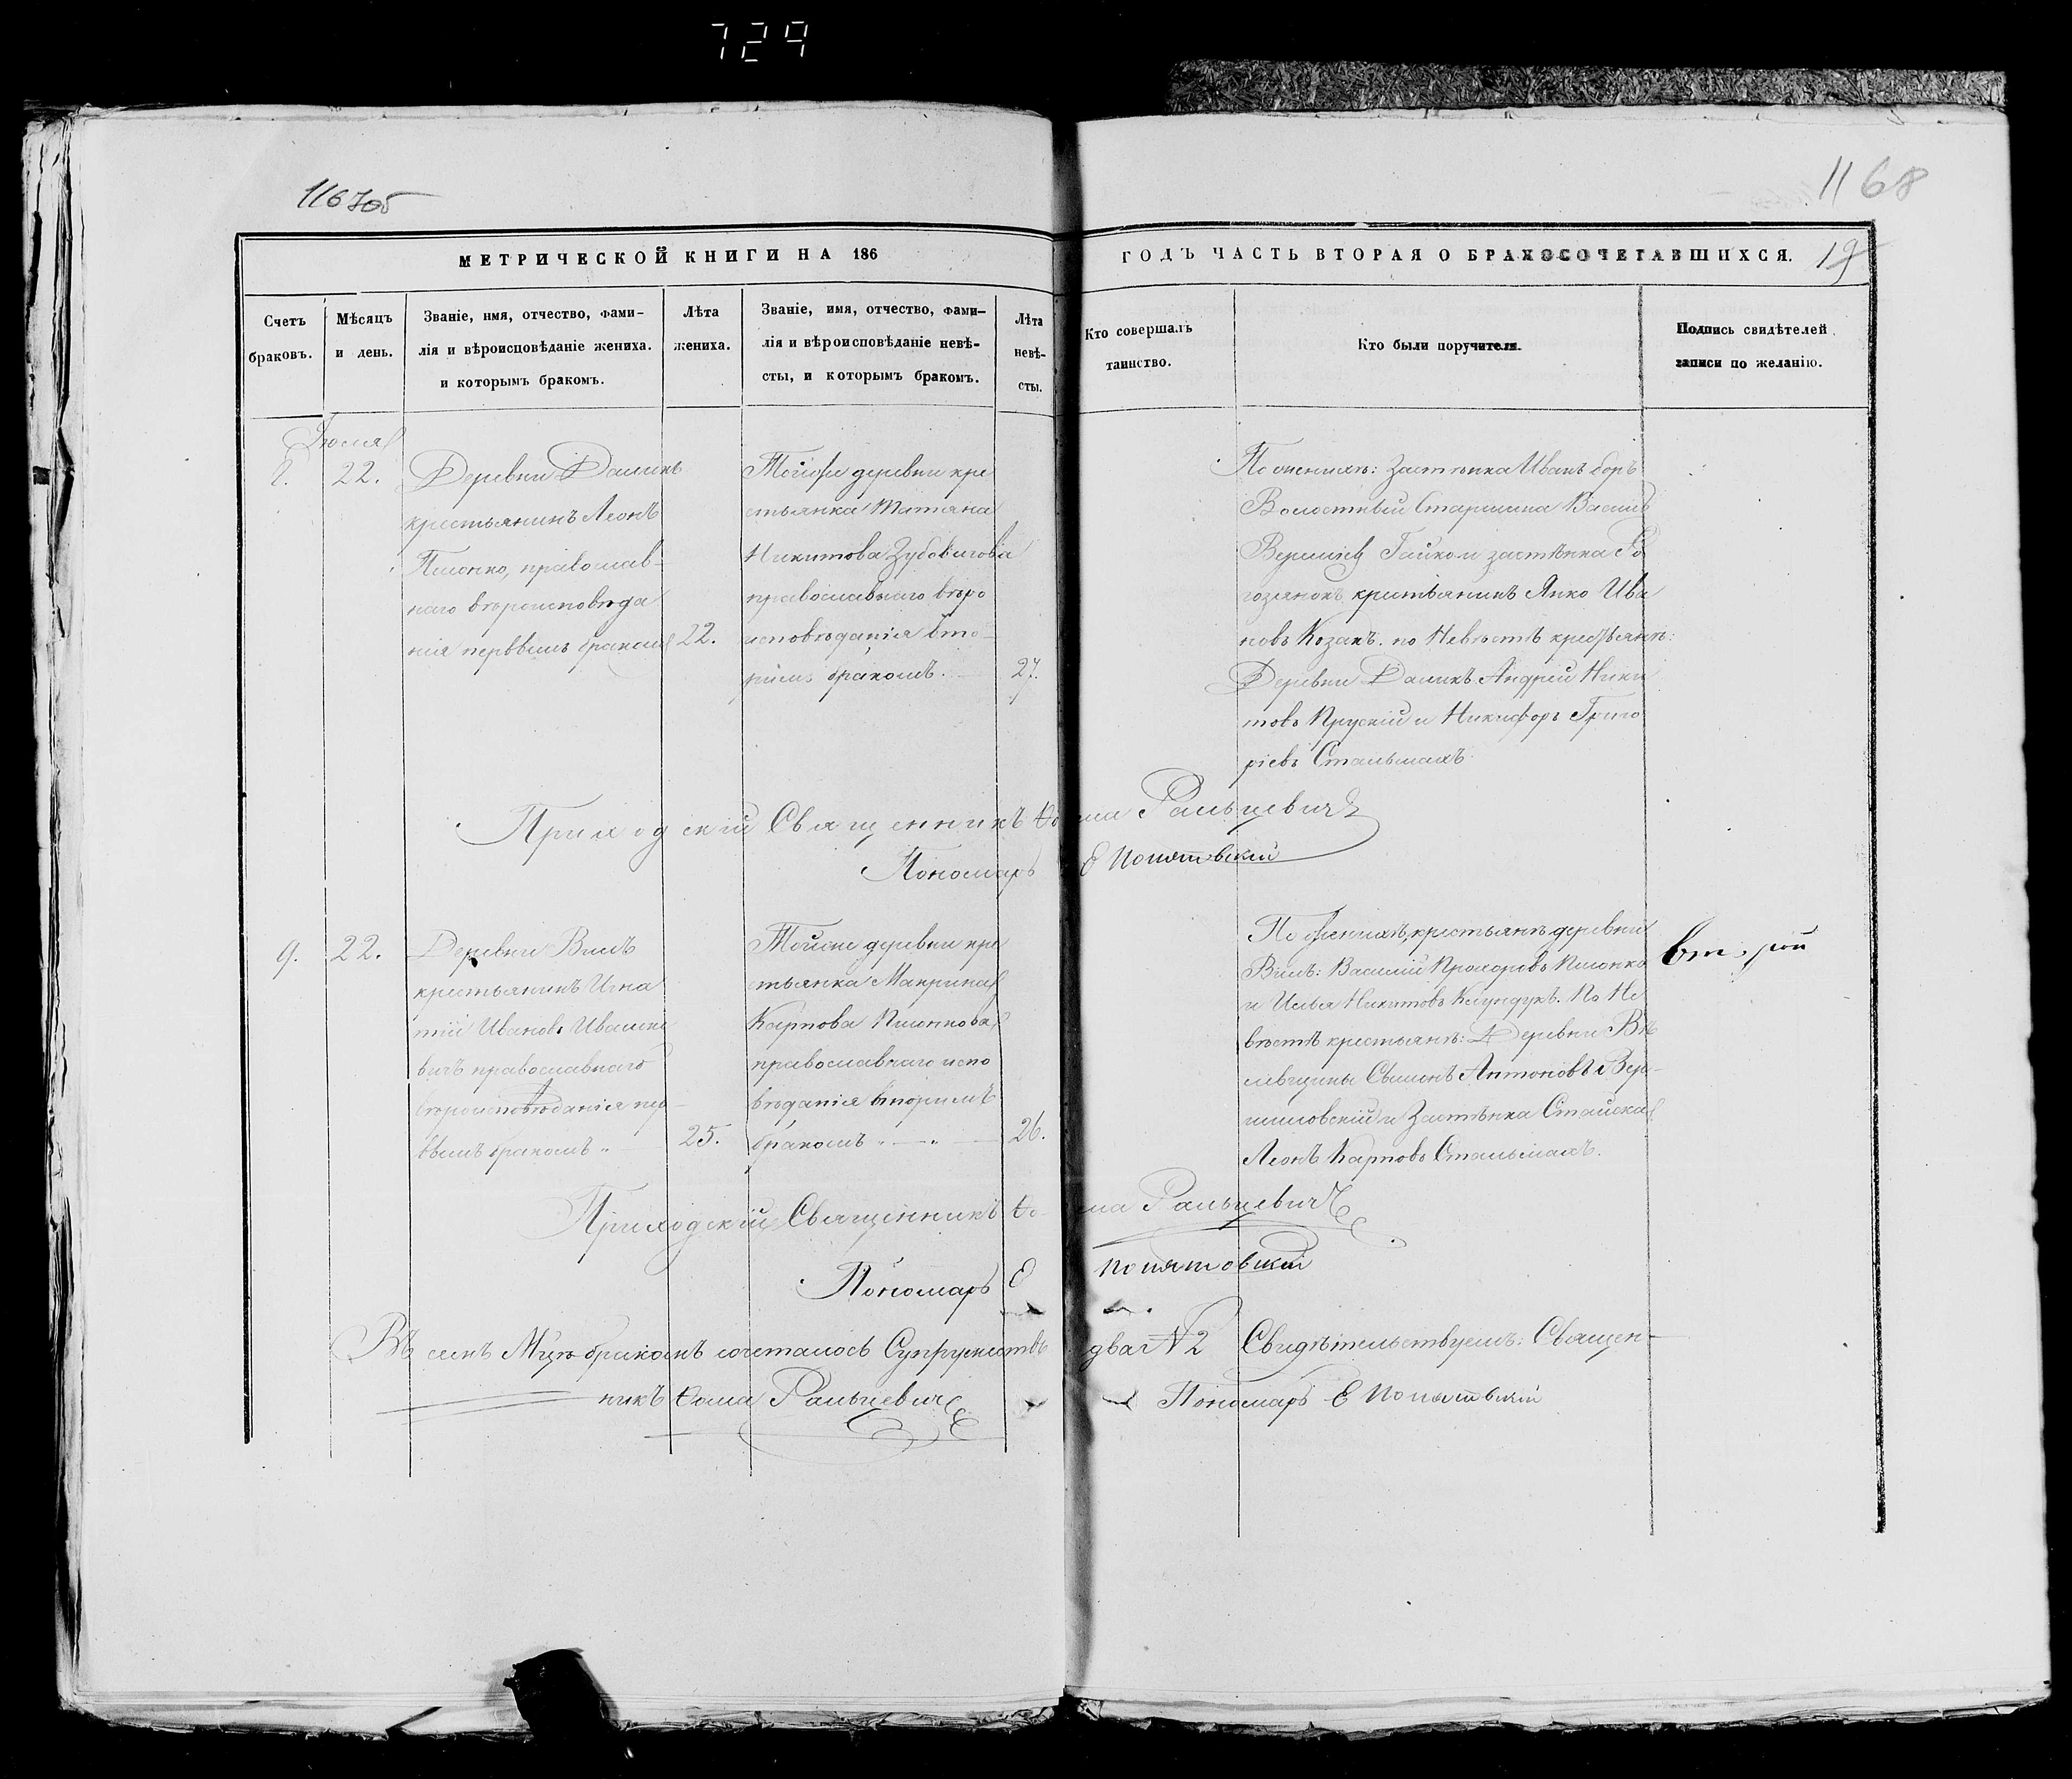 729
1167об
1168
МЕТРИЧЕСКОЙ КНИГИ НА 186
ГОДЪ ЧАСТЬ ВТОРАЯ О БРАКОСОЧЕТАВШИХСЯ.
19
Счетъ
браковъ.
Мѣсяцъ
и день.
Званіе, имя, отчество, фами-
лія и вѣроисповѣданіе жениха.
и которымъ бракомъ.
Лѣта
жениха.
Званіе, имя, отчество, фами-
лія и вѣроисповѣданіе невѣ-
сты, и которымъ бракомъ.
Лѣта
невѣ-
сты.
Кто совершалъ
таинство.
Кто были поручители.
Подпись свидѣтелей
записи по желанію.
22.
Деревни Даликъ
крестьянинъ Леонъ
Пилонко, православ-
наго вѣроисповѣда
нія первымъ бракомъ
22.
Тойже деревни кре
стьянка Татяна
Никитова Зубовигова
православнаго вѣро
исповѣданія вто-
римъ бракомъ.
27.
По женихѣ: застѣнка Иванъ боръ
Волостный Старшина Василь
застѣнка Ро
гозянокъ крестьянинъ Янко Ива
новъ Козакъ. по Невѣстѣ крестьянъ:
Деревни Даликъ Андрей Ники
товъ Прускій и Никифоръ Григо
ріевъ Стальмахъ.
Приходскій Священникъ Фома Ральцевичъ
Пономарь Е Понятовскій
9.
22.
Деревни Вилъ
крестьянинъ Игна
тій Ивановъ Ивашке
вичъ православнаго
вѣроисповѣданія пер-
вымъ бракомъ
25.
Тойже деревни кре
стьянка Макрина
Карпова Пилонкова
православнаго испо
вѣданія вторимъ
бракомъ
26.
По женихѣ, крестьянъ деревни
Вилъ: Василій Прохоровъ Пилонко
и Илья Никитовъ Клундукъ. По Не
вѣстѣ крестьянъ: Деревни Вѣ
левщины Сымонъ Антоновъ Вер-
шиловскій и Застѣнка Стайска
Леонъ Карповъ Стальмахъ.
второй
Приходскій Священникъ Фома Ральцевичъ
Пономарь Е Понятовскій
Въ семъ Мцѣ бракомъ сочеталось Супружествъ два № 2 Свидѣтельствуемъ: Священ-
никъ Фома Ральцевичъ Пономарь Е Понятовскій